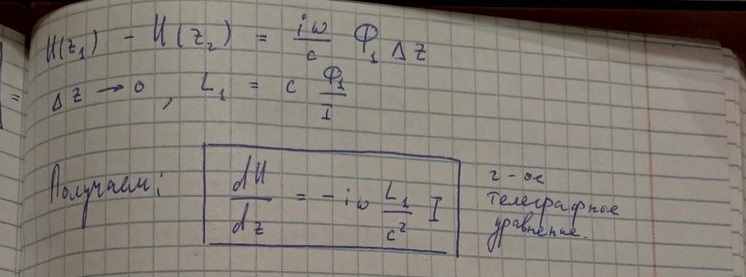 U(z₁) - U(z₂) = iω/c Φ₁ Δz
Δz → 0, L₁ = c Φ₁/I
Получаем: dU/dz = -iω L₁/c² I
2-ое
телеграфное
уравнение.